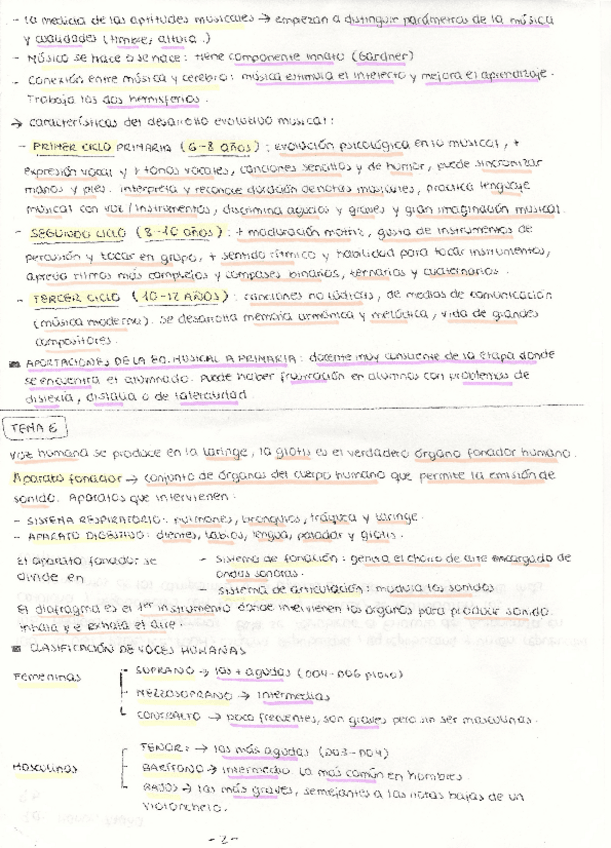 - La medición de las aptitudes musicales → empiezan a distinguir parámetros de la música
y cualidades (timbre, altura.)
- Músico se hace o se nace: tiene componente innato (Gardner)
- Conexión entre música y cerebro: música estimula el intelecto y mejora el aprendizaje.
Trabaja los dos hemisferios.
→ características del desarrollo evolutivo musical:
- PRIMER CICLO PRIMARIA (6-8 años): evolución psicológica en lo musical, +
expresión vocal y + tonos vocales, canciones sencillas y de humor, puede sincronizar
manos y pies. interpreta y reconoce duración de notas musicales, practica lenguaje
musical con voz/instrumentos, discrimina agudos y graves y gran imaginación musical.
- SEGUNDO CICLO (8-10 años): + maduración motriz, gusta de instrumentos de
percusión y tocar en grupo, + sentido rítmico y habilidad para tocar instrumentos,
aprende ritmos más complejos y compases binarios, ternarios y cuaternarios.
- TERCER CICLO (10-12 AÑOS): canciones no lúdicas, de medios de comunicación
(música moderna). Se desarrolla memoria armónica y melódica, vida de grandes
compositores.
■ APORTACIONES DE LA ED. MUSICAL A PRIMARIA: docente muy consciente de la etapa donde
se encuentra el alumnado. Puede haber frustración en alumnos con problemas de
dislexia, dislalia o de lateralidad
TEMA 6
Voz humana se produce en la laringe, la glotis es el verdadero órgano fonador humano.
Aparato fonador → conjunto de órganos del cuerpo humano que permite la emisión de
sonido. Aparatos que intervienen:
- SISTEMA RESPIRATORIO: pulmones, bronquios, tráquea y laringe.
- APARATO DIGESTIVO: dientes, labios, lengua, paladar y glotis.
El aparato fonador se
divide en
- Sistema de fonación: genera el chorro de aire encargado de
ondas sonoras.
- Sistema de articulación: modula los sonidos
El diafragma es el 1er instrumento donde intervienen los órganos para producir sonido.
inhala y e exhala el aire.
■ CLASIFICACIÓN DE VOCES HUMANAS
Femeninas
- SOPRANO → las + agudas (DO4-DO6 piano)
- MEZZOSOPRANO → intermedias
- CONTRALTO → poco frecuentes, son graves pero sin ser masculinas.
Masculinas
TENOR: → las más agudas (DO3-DO4)
BARÍTONO → intermedio. La más común en hombres.
BAJOS → las más graves, semejantes a las notas bajas de un
violonchelo.
-2-